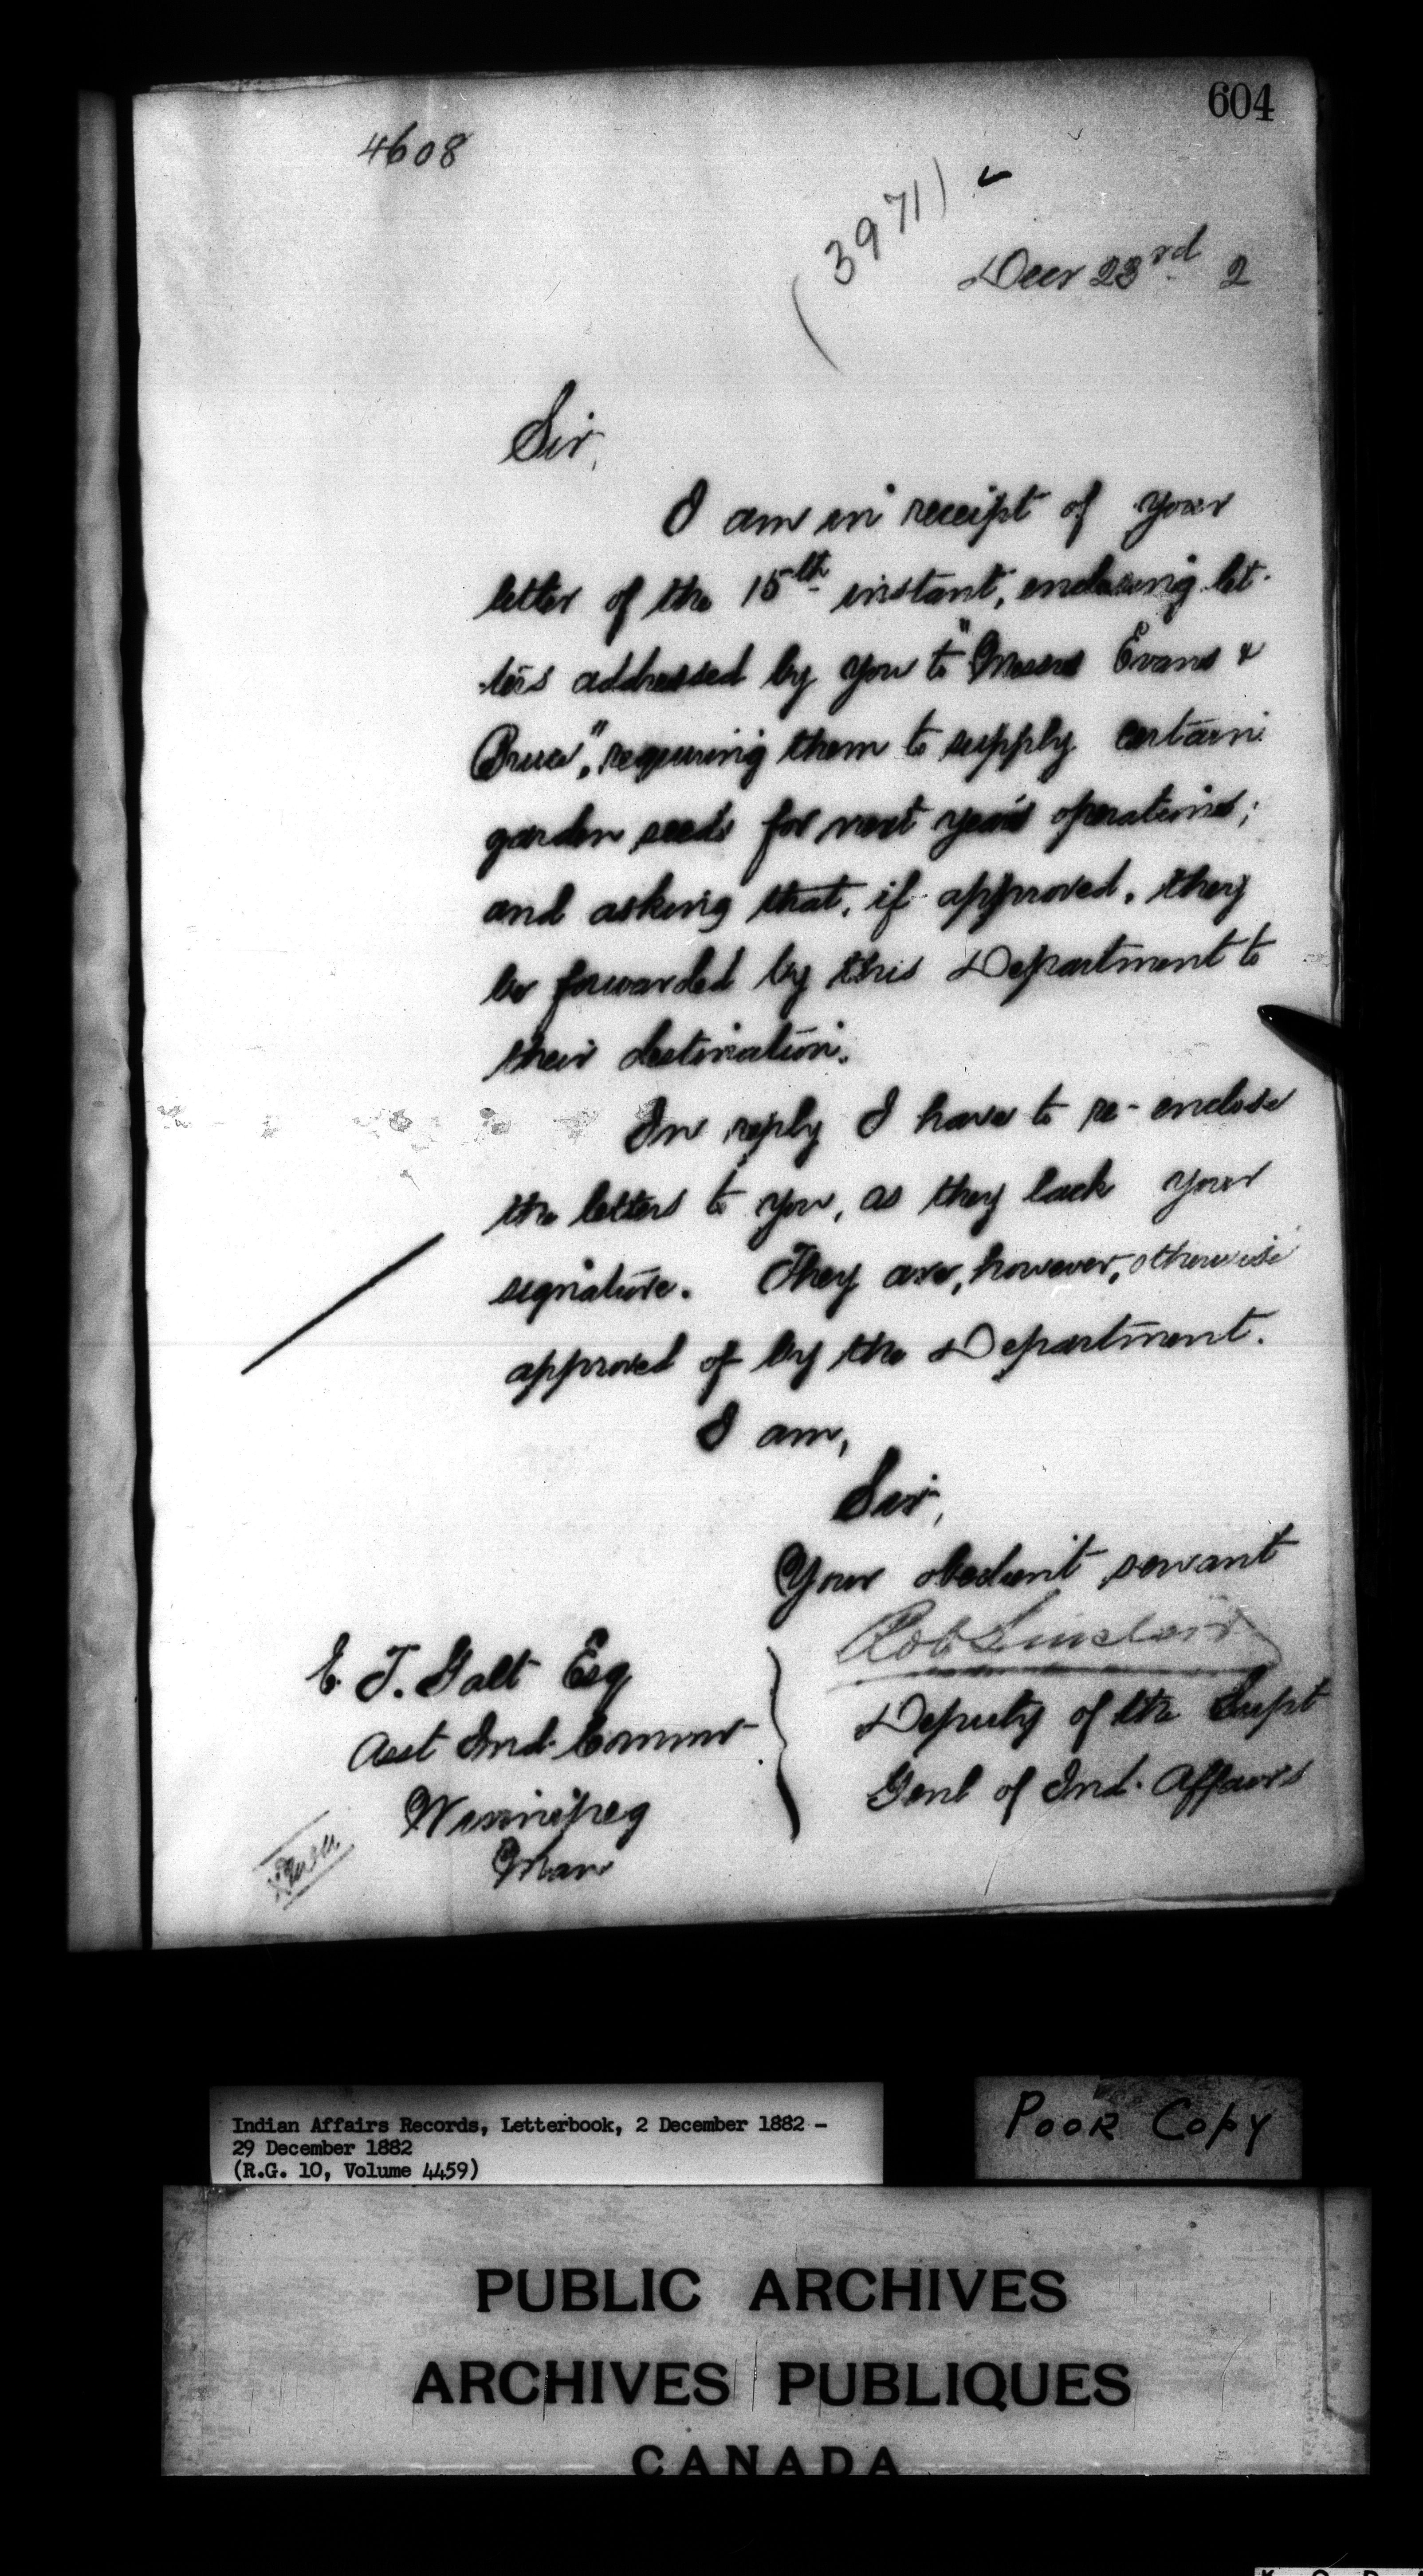 604
4608
(3971)
Decr 23rd 2
Sir,
I am in receipt of your
letter of the 15th instant, enclosing let-
ters addressed by you to "Messrs Evans &
Bruce", requiring them to supply certain
garden seeds for next year's operations;
and asking that, if approved, they
be forwarded by this Department to
their destination.
In reply I have to re-enclose
the letters to you, as they lack your
signature. They are, however, otherwise
approved of by the Department.
I am,
Sir,
Your obedient servant
Rob Sinclair
Deputy of the Supt
Genl of Ind. Affairs
E. T. Galt Esq
Asst Ind. Commr
Winnipeg
Man
Indian Affairs Records, Letterbook, 2 December 1882 -
29 December 1882
(R.G. 10, Volume 4459)
POOR COPY
PUBLIC ARCHIVES
ARCHIVES PUBLIQUES
CANADA